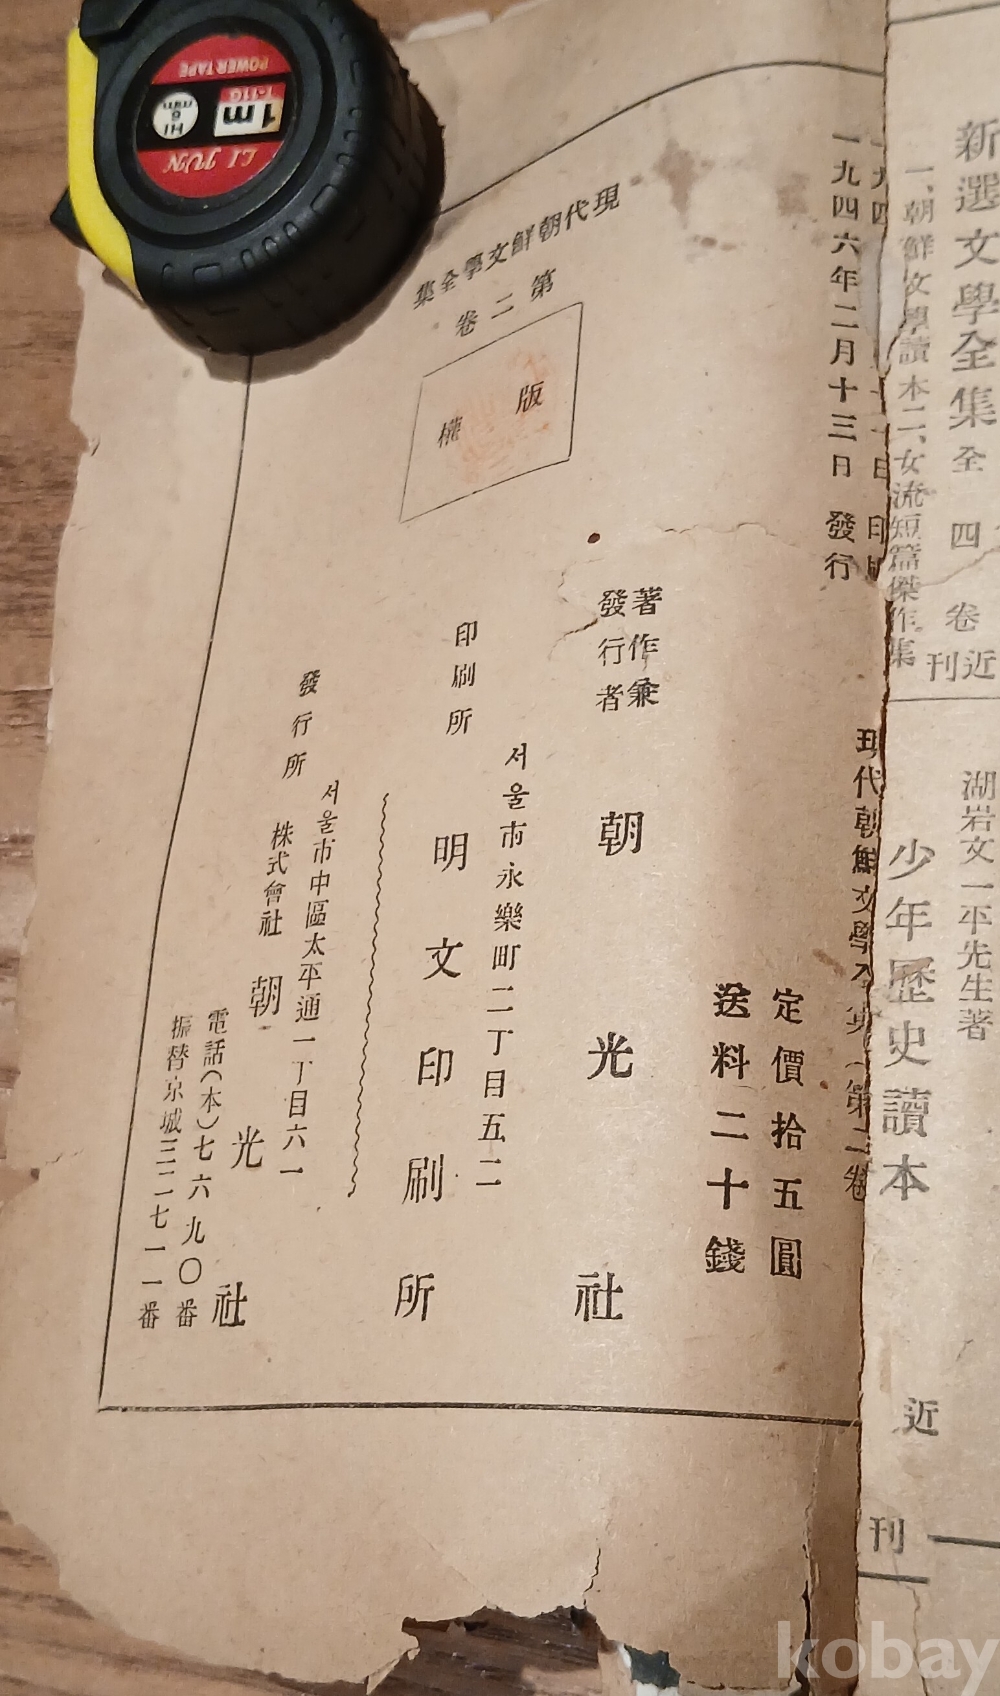 新選文學全集 全四卷 近刊
一、朝鮮文學讀本 二、女流短篇傑作集
湖岩文一平先生著
少年歷史讀本
近刊
一九四六年二月十三日 發行
現代朝鮮文學全集(第二卷)
定價拾五圓
送料二十錢
著作兼
發行者
朝光社
서울市永樂町二丁目五二
印刷所
明文印刷所
서울市中區太平通一丁目六一
發行所
株式會社 朝光社
電話(本)七六九〇番
振替京城三二七一一番
現代朝鮮文學全集
第二卷
版權
POWER TAPE
T-11G
1m
HI
6
mm
LI JUN
kobay